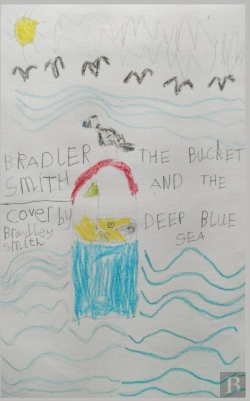 BRADLER THE BUCKET
SMITH AND THE
cover by DEEP BLUE
Bradley SEA
Smith
B